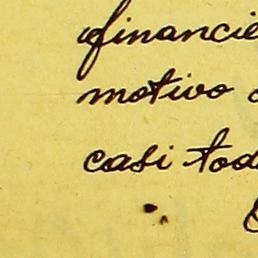 financie
motivo
casi tod